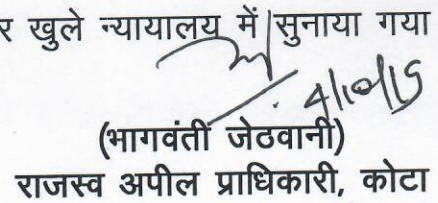 र खुले न्यायालय में सुनाया गया
4/10/15
(भागवंती जेठवानी)
राजस्व अपील प्राधिकारी, कोटा